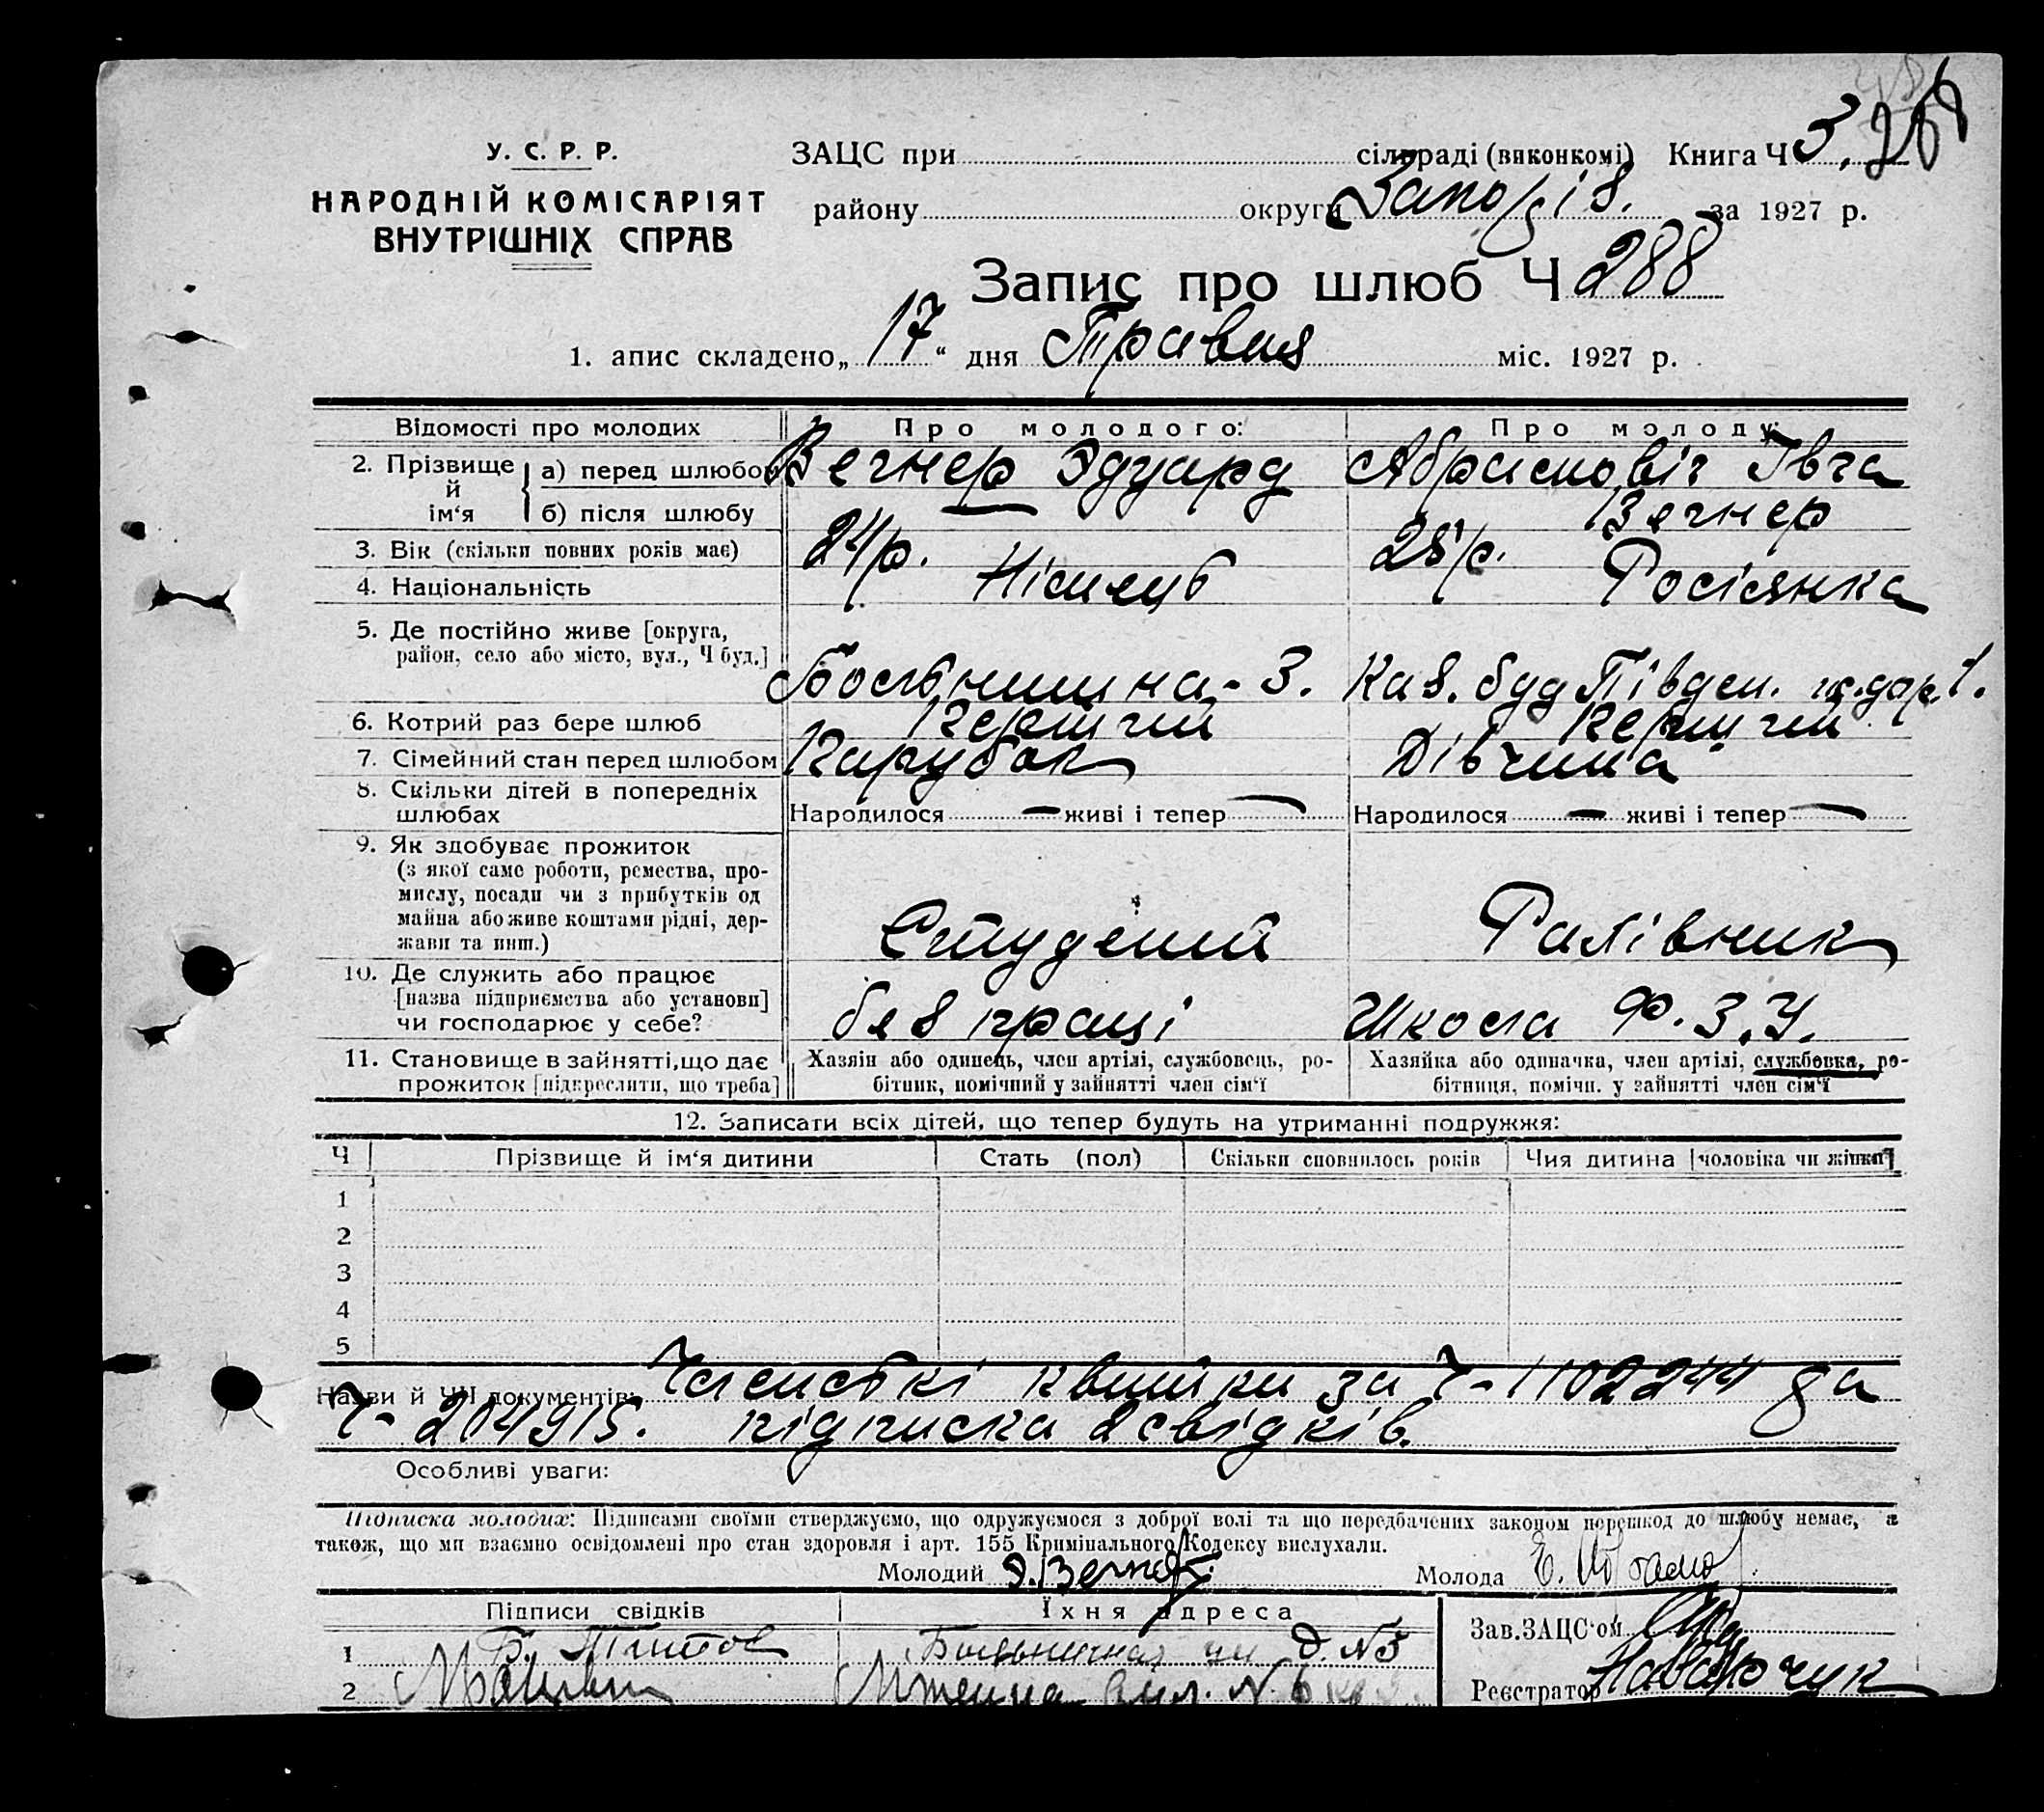 У. С. Р. Р.
НАРОДНІЙ КОМІСАРІЯТ
ВНУТРІШНІХ СПРАВ
ЗАЦС при сільраді (виконкомі) Книга Ч 3.
району округи за 1927 р.
Запис про шлюб Ч 288
1. апис складено „17“ дня Травня міс. 1927 р.
Відомості про молодих Про молодого: Про молоду:
2. Прізвище й ім‘я
а) перед шлюбом Вегнер Эдуард Абрамовіч Івга
б) після шлюбу Вегнер
3. Вік (скільки повних років має) 24/р. 25/р.
4. Національність Німець Росіянка
5. Де постійно живе [округа, район, село або місто, вул., Ч буд.]
Больнична - 3. Каз. буд Півден. ж.дор. 1.
6. Котрий раз бере шлюб Перший Перший
7. Сімейний стан перед шлюбом Парубок Дівчина
8. Скільки дітей в попередніх шлюбах
Народилося — живі і тепер — Народилося — живі і тепер —
9. Як здобуває прожиток
(з якої саме роботи, ремества, про-
мислу, посади чи з прибутків од
майна або живе коштами рідні, дер-
жави та инш.)
Студент Рахівник
10. Де служить або працює
[назва підприємства або установи]
чи господарює у себе?
без праці Школа Ф.З.У.
11. Становище в зайнятті, що дає
прожиток [підкреслити, що треба]
Хазяїн або одинець, член артілі, службовець, ро-
бітник, помічний у зайнятті член сім‘ї
Хазяйка або одиначка, член артілі, службовка, ро-
бітниця, помічн. у зайнятті член сім‘ї
12. Записати всіх дітей, що тепер будуть на утриманні подружжя:
Ч Прізвище й ім‘я дитини Стать (пол) Скільки сповнилось років Чия дитина [чоловіка чи жінки]
1
2
3
4
5
Назви й ЧЧ документів: Членські квитки за Ч - 1102244 да
Ч - 204915. підписка 2 свідків.
Особливі уваги:
Підписка молодих: Підписами своїми стверджуємо, що одружуємося з доброї волі та що передбачених законом перешкод до шлюбу немає, а
також, що ми взаємно освідомлені про стан здоровля і арт. 155 Кримінального Кодексу вислухали.
Молодий Э. Вегнер Молода Е. Абрамов
Підписи свідків Їхня адреса Зав. ЗАЦС‘ом
1 Б. Титов Больничная ул д. N5
2 вул. N. 6 Реєстратор